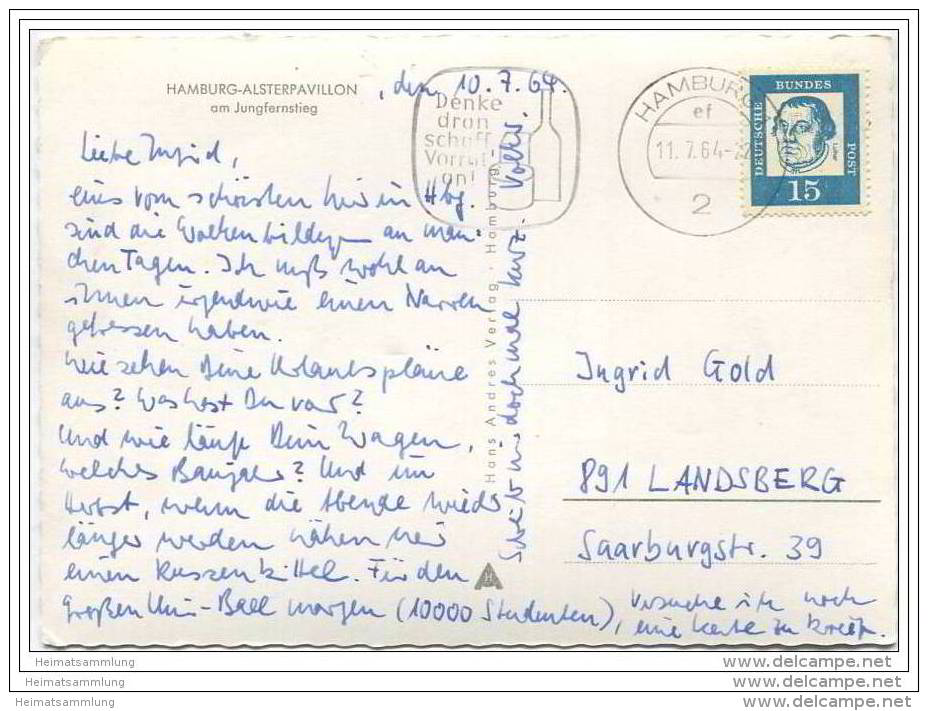 HAMBURG-ALSTERPAVILLON
am Jungfernstieg
, den, 10.7.64.
Denke
dran
schaff
Vorrat
an!
HAMBURG
ef
11.7.64-
2
DEUTSCHE
BUNDES
POST
Luther
15
Liebe Ingrid,
eins vom schönsten hier in Hbg.
sind die Wolkenbilder an man-
chen Tagen. Ich muß wohl an
ihnen irgendwie einen Narren
gefressen haben.
Wie sehen Deine Urlaubspläne
aus? Was hast Du vor?
Und wie läuft Dein Wagen,
welches Baujahr? Und im
Herbst, wenn die Abende wieder
länger werden nähen wir
einen Russenkittel. Für den
großen Uni-Ball morgen (10000 Studenten),
versuche ich noch
eine Karte zu
Schreib mir doch mal kurz. Volker.
Hans Andres Verlag · Hamburg
H
Ingrid Gold
891 LANDSBERG
Saarburgstr. 39
Heimatsammlung
Heimatsammlung
Heimatsammlung
www.delcampe.net
www.delcampe.net
www.delcampe.net